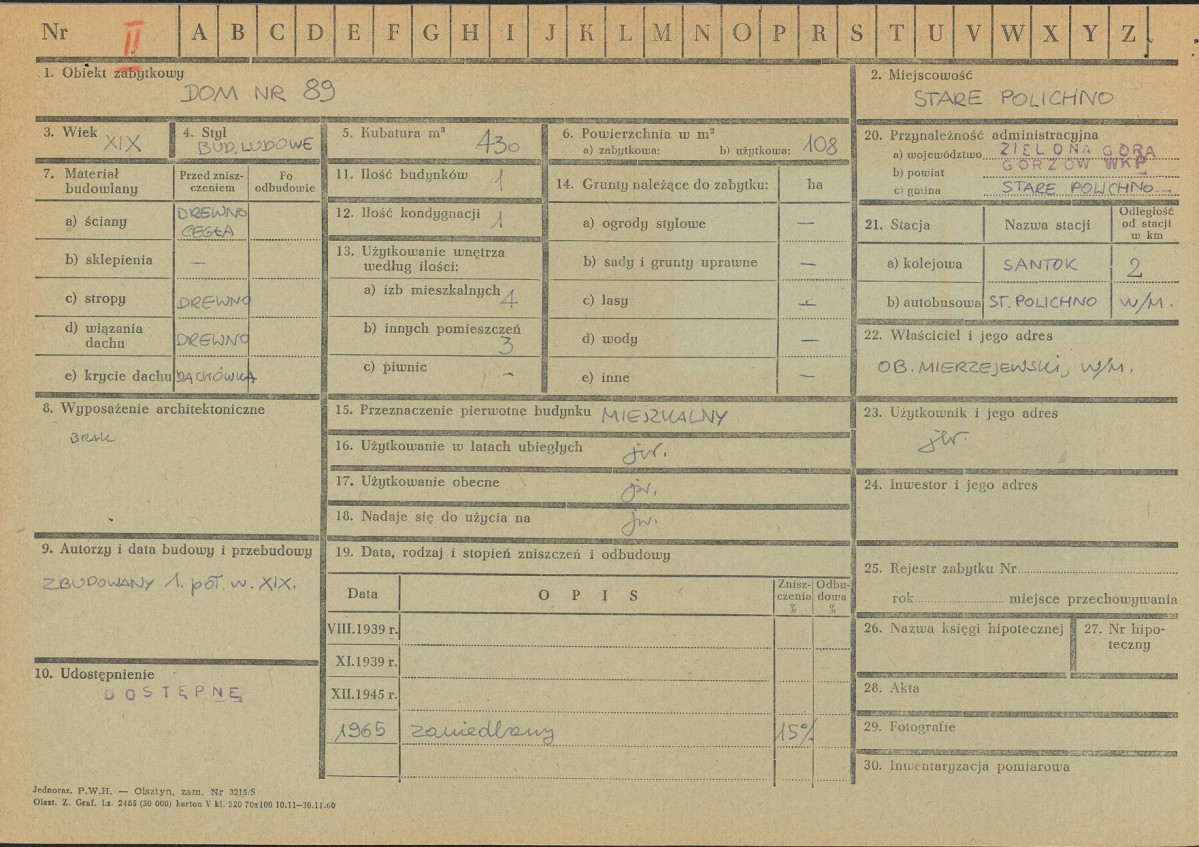 Nr II A B C D E F G H I J K L M N O P R S T U V W X Y Z
1. Obiekt zabytkowy
DOM NR 89
2. Miejscowość
STARE POLICHNO
3. Wiek
XIX
4. Styl
BUD. LUDOWE
5. Kubatura m³
430
6. Powierzchnia w m²
a) zabytkowa: b) użytkowa: 108
7. Materiał budowlany
Przed zniszczeniem
Po odbudowie
a) ściany DREWNO CEGŁA
b) sklepienia —
c) stropy DREWNO
d) wiązania dachu DREWNO
e) krycie dachu DACHÓWKA
8. Wyposażenie architektoniczne
BRAK
9. Autorzy i data budowy i przebudowy
ZBUDOWANY 1. poł. w. XIX.
10. Udostępnienie
DOSTĘPNE
11. Ilość budynków 1
12. Ilość kondygnacji 1
13. Użytkowanie wnętrza według ilości:
a) izb mieszkalnych 4
b) innych pomieszczeń 3
c) piwnic –
14. Grunty należące do zabytku: ha
a) ogrody stylowe —
b) sady i grunty uprawne —
c) lasy —
d) wody —
e) inne —
15. Przeznaczenie pierwotne budynku MIESZKALNY
16. Użytkowanie w latach ubiegłych jw.
17. Użytkowanie obecne jw.
18. Nadaje się do użycia na jw.
19. Data, rodzaj i stopień zniszczeń i odbudowy
Data OPIS Zniszczenia % Odbudowa %
VIII.1939 r.
XI.1939 r.
XII.1945 r.
1965 zaniedbany 15%
20. Przynależność administracyjna
a) województwo ZIELONA GÓRA
b) powiat GORZÓW WKP
c) gmina STARE POLICHNO
21. Stacja Nazwa stacji Odległość od stacji w km
a) kolejowa SANTOK 2
b) autobusowa ST. POLICHNO W/M.
22. Właściciel i jego adres
OB. MIERZEJEWSKI, W/M.
23. Użytkownik i jego adres
jw.
24. Inwestor i jego adres
25. Rejestr zabytku Nr
rok miejsce przechowywania
26. Nazwa księgi hipotecznej
27. Nr hipoteczny
28. Akta
29. Fotografie
30. Inwentaryzacja pomiarowa
Jednoraz. P.W.H. — Olsztyn, zam. Nr 3215/S
Olszt. Z. Graf. Lz. 2485 (30 000) karton V kl. 220 70x100 10.11—30.11.60